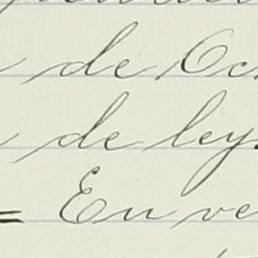 de Oc
de ley.
= En ve